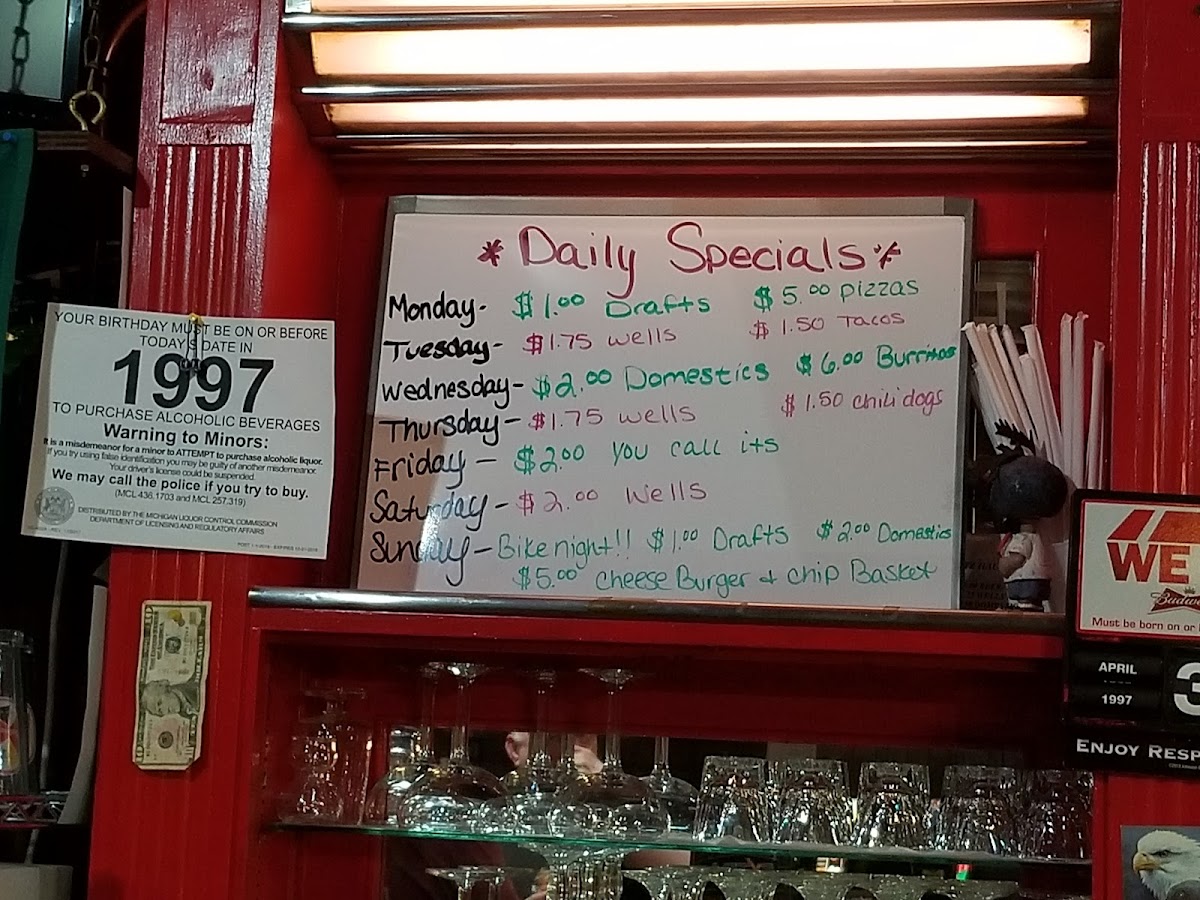 * Daily Specials *
Monday- $1.00 Drafts $5.00 pizzas
Tuesday- $1.75 wells $1.50 Tacos
Wednesday- $2.00 Domestics $6.00 Burritos
Thursday- $1.75 wells $1.50 chili dogs
Friday - $2.00 you call its
Saturday- $2.00 wells
Sunday - Bike night!! $1.00 Drafts $2.00 Domestics
$5.00 cheese Burger + chip Basket
YOUR BIRTHDAY MUST BE ON OR BEFORE
TODAY'S DATE IN
1997
TO PURCHASE ALCOHOLIC BEVERAGES
Warning to Minors:
It is a misdemeanor for a minor to ATTEMPT to purchase alcoholic liquor.
If you try using false identification you may be guilty of another misdemeanor.
Your driver's license could be suspended.
We may call the police if you try to buy.
(MCL 436.1703 and MCL 257.319)
DISTRIBUTED BY THE MICHIGAN LIQUOR CONTROL COMMISSION
DEPARTMENT OF LICENSING AND REGULATORY AFFAIRS
WE
Budwe
Must be born on or
APRIL
3
1997
ENJOY RESP